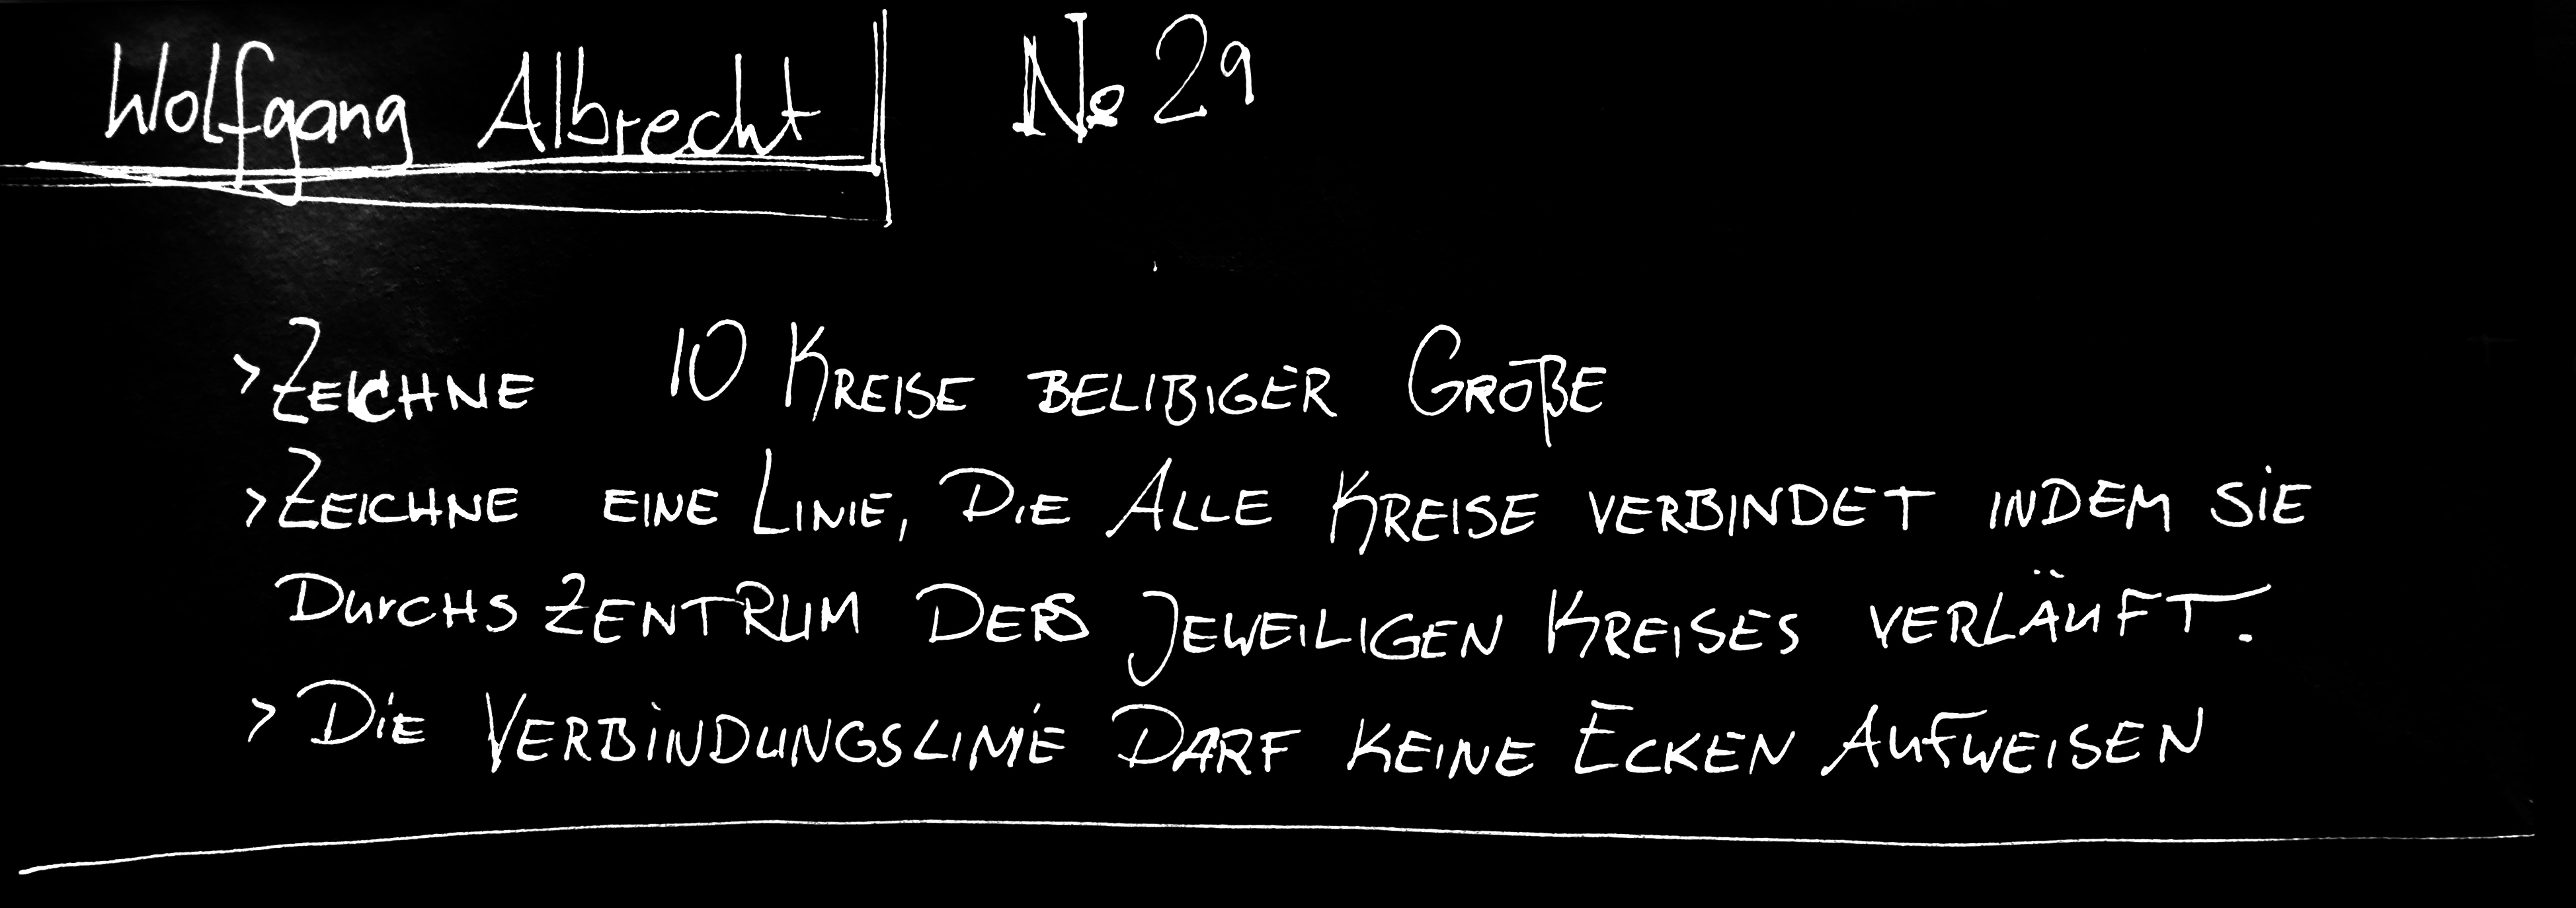 Wolfgang Albrecht № 29
> ZEICHNE 10 KREISE BELIBIGER GRÖßE
> ZEICHNE EINE LINIE, DIE ALLE KREISE VERBINDET INDEM SIE
DURCHS ZENTRUM DES JEWEILIGEN KREISES VERLÄUFT.
> DIE VERBINDUNGSLINIE DARF KEINE ECKEN AUFWEISEN